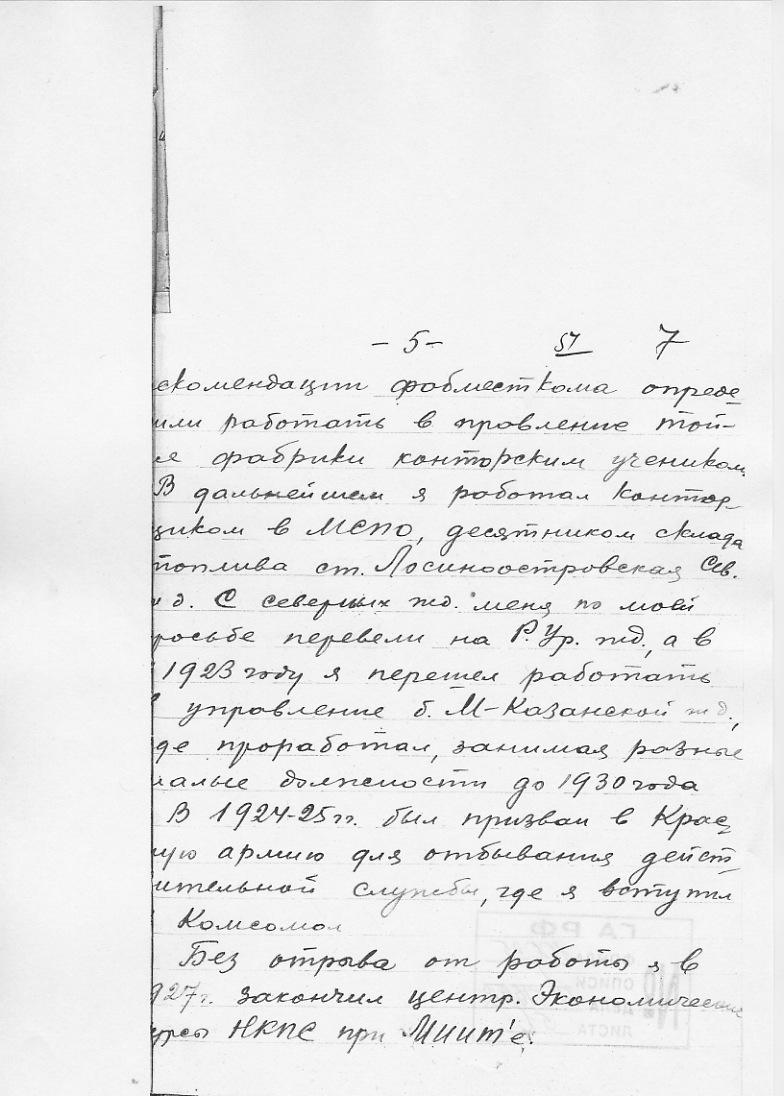 -5- 51 7
екомендации фабместкома опреде
или работать в правление той-
е фабрики конторским учеником.
В дальнейшем я работал контор-
щиком в МСПО, десятником склада
топлива ст. Лосиноостровская Сев.
д. С северных жд. меня по моей
росьбе перевели на Р.Ур. жд., а в
1923 году я перешел работать
управление б. М-Казанской жд.,
де проработал, занимая разные
малые должности до 1930 года
В 1924-25 гг. был призван в Крас
ную армию для отбывания дейст
ительной службы, где я вступил
Комсомол
Без отрыва от работы я в
927 г. закончил центр. Экономические
урсы НКПС при МИИТ'е.
ГА РФ
ОПИСИ
№ ДЕЛА
ЛИСТА